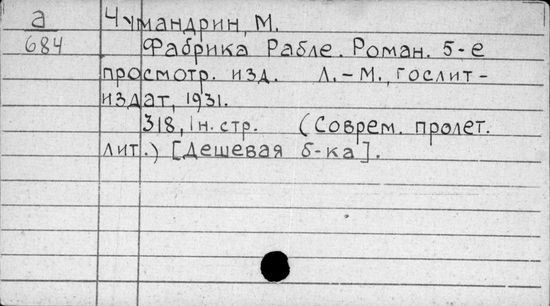 а
684
Чумандрин, М.
Фабрика Рабле. Роман. 5-е
просмотр. изд. Л.-М., Гослит-
издат, 1931.
318, 1 н. стр. (Соврем. пролет.
лит.) [Дешевая б-ка].